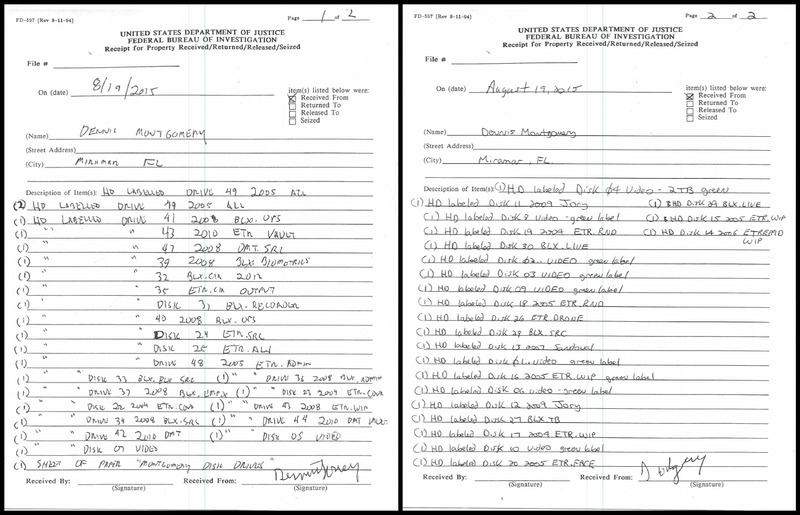 FD-597 (Rev 8-11-94)
Page 1 of 2
UNITED STATES DEPARTMENT OF JUSTICE
FEDERAL BUREAU OF INVESTIGATION
Receipt for Property Received/Returned/Released/Seized
File #
On (date) 8/19/2015
item(s) listed below were:
Received From
Returned To
Released To
Seized
(Name) DENNIS MONTGOMERY
(Street Address)
(City) MIRAMAR FL
Description of Item(s): HD LABELLED DRIVE 49 2005 ALL
(2) HD LABELLED DRIVE 49 2005 ALL
(1) HD LABELLED DRIVE 41 2008 BLX.OPS
(1) " " " 43 2010 ETR VAULT
(1) " " 47 2008 DMT.SRC
(1) " " 39 2008 BLX.BIOMETRICS
(1) " " 32 BLX.CIA 2012
(1) " " 35 ETR.CIA OUTPUT
(1) " DISK 31 BLX.RELOADER
(1) " " 40 2008 BLX.OPS
(1) " " DISK 24 ETR.SRC
(1) " " DISK 25 ETR.ALL
(1) " " DRIVE 48 2005 ETR.ADMIN
(1) " " DISK 33 BLX.BLX SRC (1) " " DRIVE 36 2008 BLX.ADMIN
(1) " " DRIVE 37 2008 BLX. (1) " " DISK 23 2009 ETR.COUR
(1) " " DISK 22 2009 ETR.COUR (1) " " DRIVE 45 2008 ETR.WIP
(1) " " DRIVE 34 2008 BLX.SRC (1) " " DRIVE 44 2010 DMT VAULT
(1) " " DRIVE 42 2010 DMT (1) " " DISK 05 VIDEO
(1) " " DISK 07 VIDEO
(1) SHEET OF PAPER "MONTGOMERY DISK DRIVES"
Received By:
(Signature)
Received From:
(Signature)
FD-597 (Rev 8-11-94)
Page 2 of 2
UNITED STATES DEPARTMENT OF JUSTICE
FEDERAL BUREAU OF INVESTIGATION
Receipt for Property Received/Returned/Released/Seized
File #
On (date) August 19, 2015
item(s) listed below were:
Received From
Returned To
Released To
Seized
(Name) Dennis Montgomery
(Street Address)
(City) Miramar, FL.
Description of Item(s): (1) HD labeled Disk 04 Video - 2TB green
(1) HD labeled Disk 11 2009 Jory (1) BHD Disk 29 BLX.LIVE
(1) HD labeled Disk 8 video - green label (1) BHD Disk 15 2005 ETR.WIP
(1) HD labeled Disk 19 2004 ETR.RND (1) HD Disk 14 2006 WIP
(1) HD labeled Disk 30 BLX.LIVE
(1) HD labeled Disk 02.. VIDEO green label
(1) HD labeled Disk 03 VIDEO green label
(1) HD labeled Disk 09 VIDEO green label
(1) HD labeled Disk 18 2005 ETR.RND
(1) HD labeled Disk 26 ETR.DRONE
(1) HD labeled Disk 28 BLX.SRC
(1) HD labeled Disk 13 2007 Sandoval
(1) HD labeled Disk 01.video green label
(1) HD labeled Disk 16 2005 ETR.WIP green label
(1) HD labeled Disk 06 video - green label
(1) HD labeled Disk 12 2009 Jory
(1) HD labeled Disk 27 BLX.TB
(1) HD labeled Disk 17 2004 ETR.WIP
(1) HD labeled Disk 10 video green label
(1) HD labeled Disk 20 2005 ETR.FACE
Received By:
(Signature)
Received From:
(Signature)